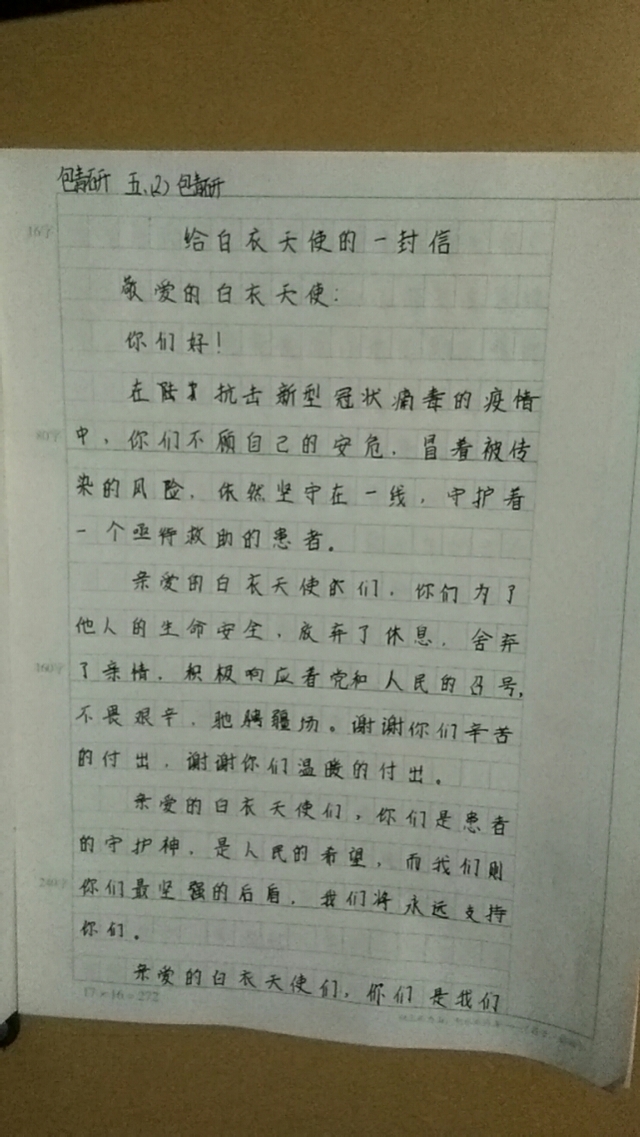 包青研 五.(2) 包青研
16字
给白衣天使的一封信
敬爱的白衣天使:
你们好!
在陆 抗击新型冠状病毒的疫情
80字
中,你们不顾自己的安危,冒着被传
染的风险,依然坚守在一线,守护着
一个亟待救助的患者。
亲爱的白衣天使 们,你们为了
他人的生命安全,放弃了休息,舍弃
160字
了亲情,积极响应着党和人民的召号,
不畏艰辛,驰骋疆场。谢谢你们辛苦
的付出,谢谢你们温暖的付出。
亲爱的白衣天使们,你们是患者
的守护神,是人民的希望,而我们则
240字
你们最坚强的后盾,我们将永远支持
你们。
亲爱的白衣天使们,你们是我们
17×16=272